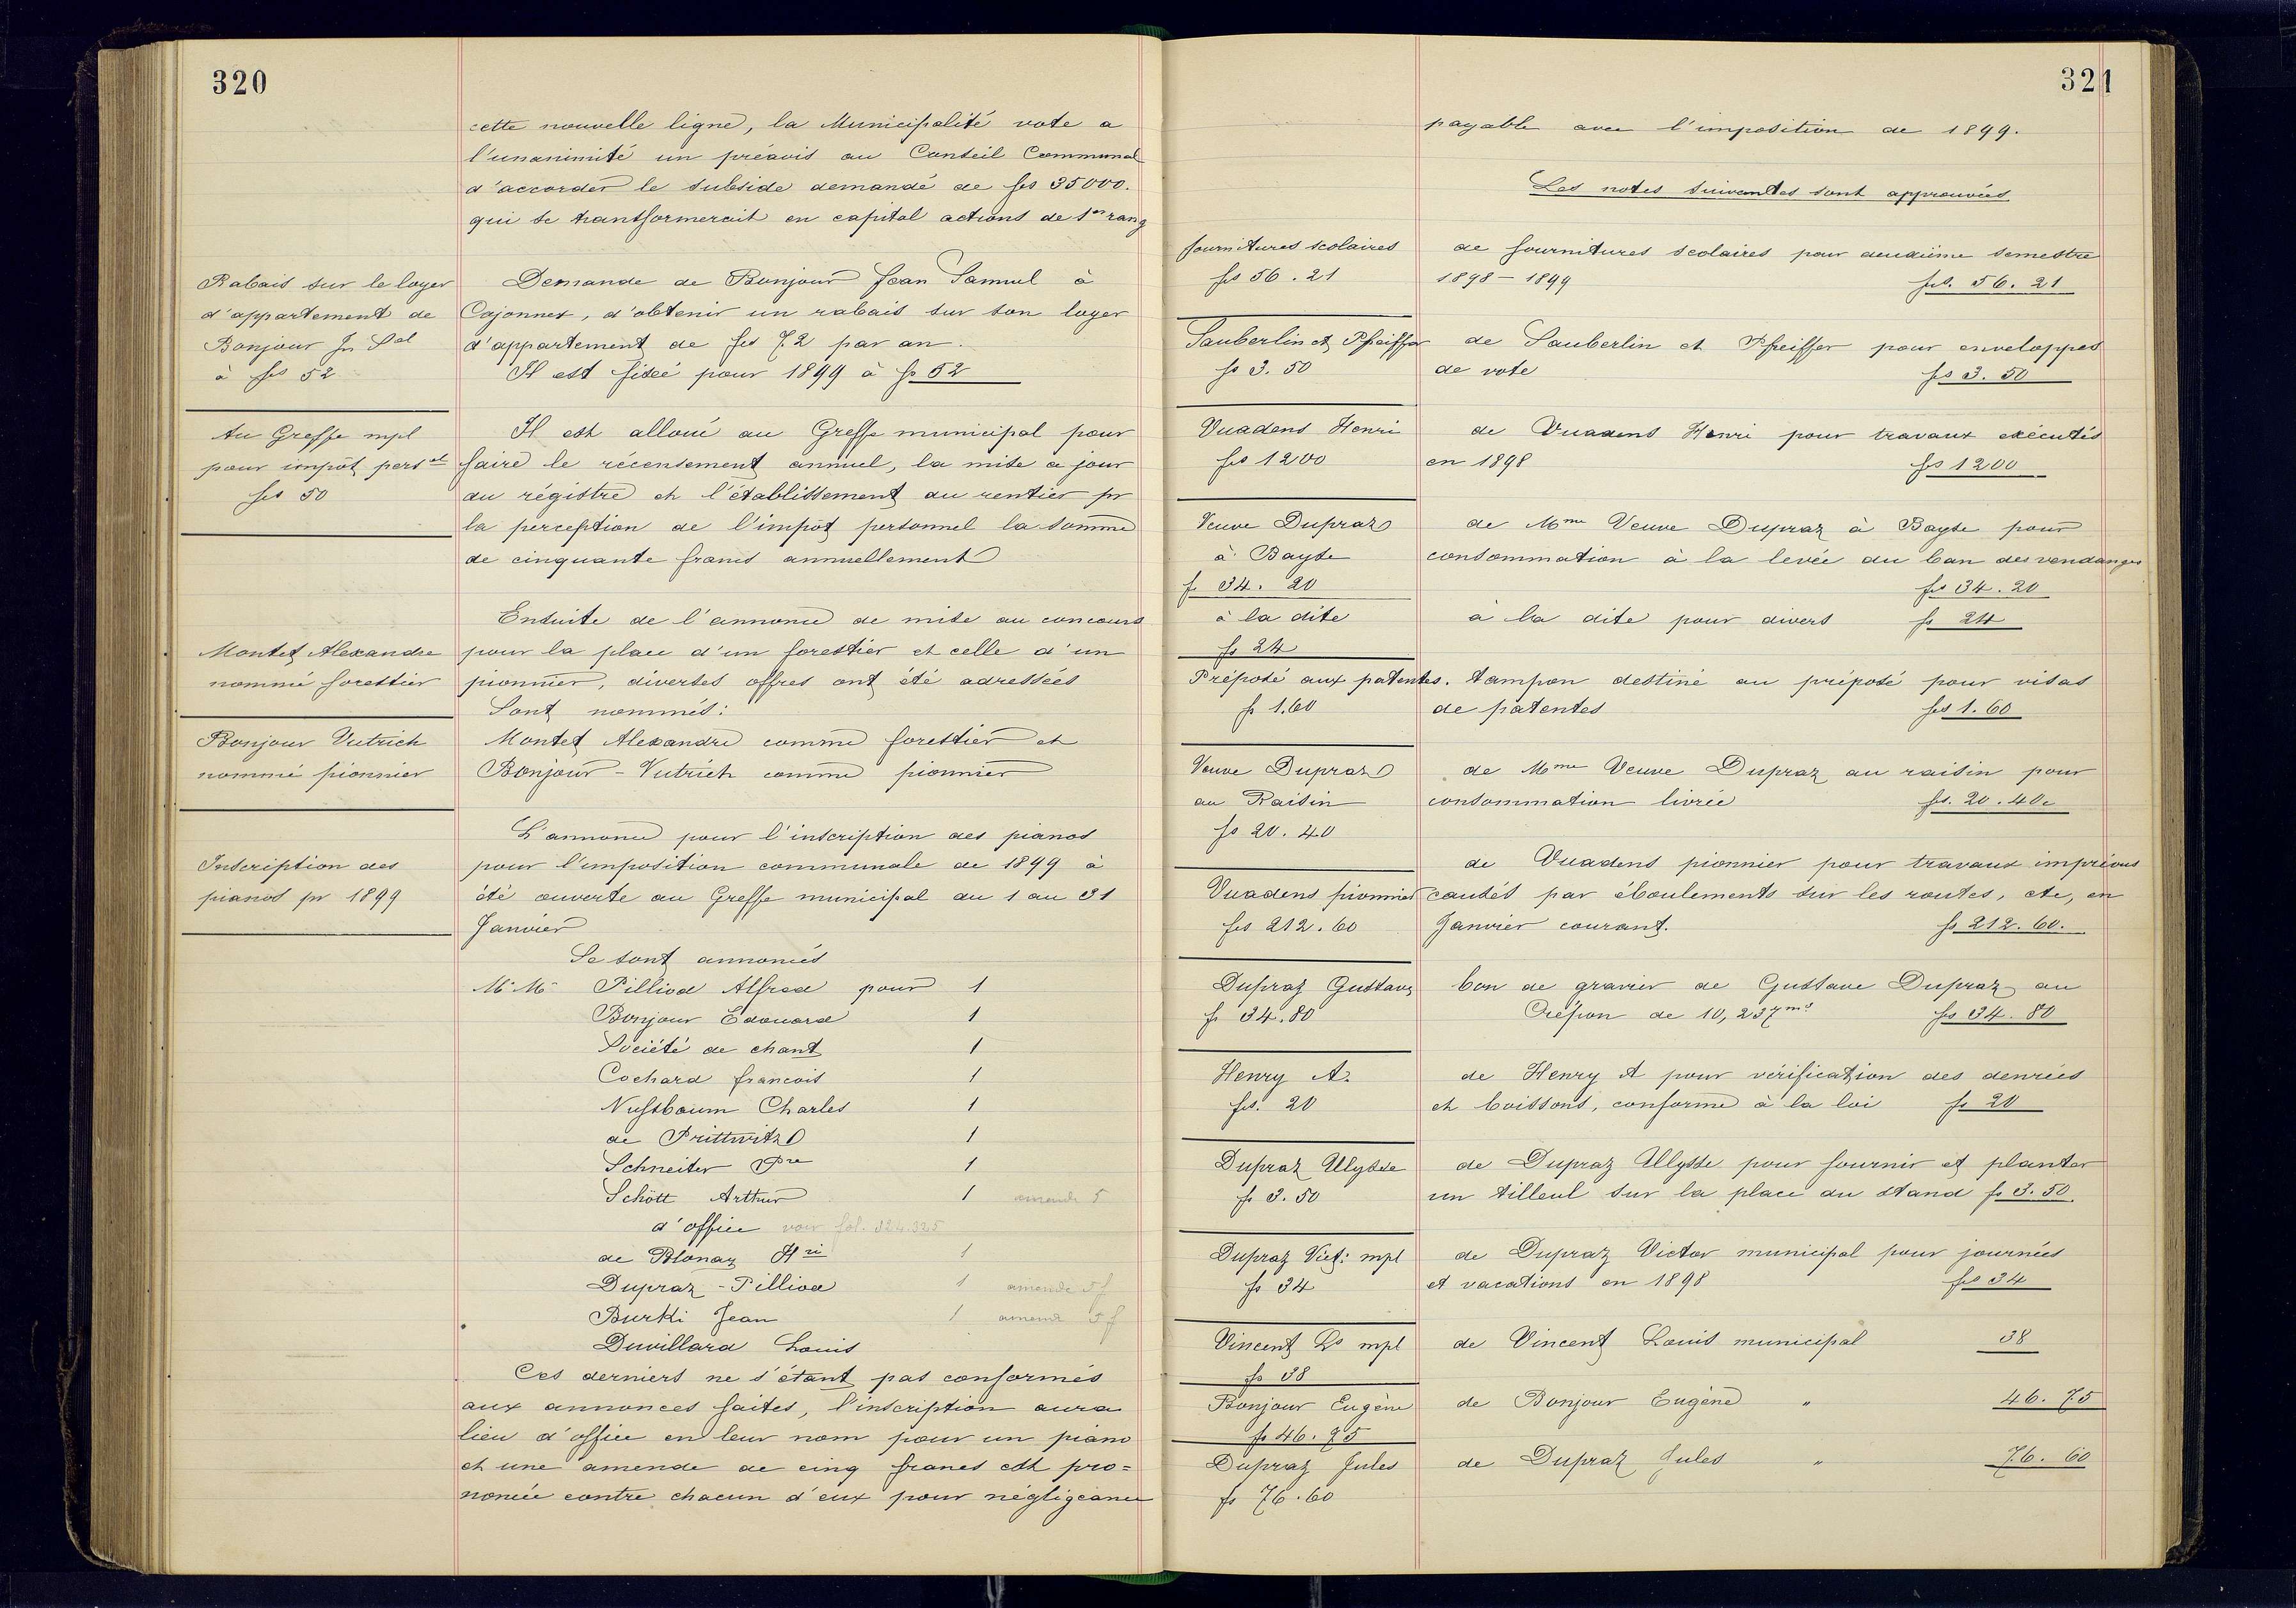 320
cette nouvelle ligne, la Municipalité vote a
l'unanimité un préavis au Conseil Communal
d'accorder le subside demandé de frs 35000.
qui se transformerait en capital actions de 1er rang
Rabais sur le loyer
d'appartement de
Bonjour Jn Sal
à frs 52
Demande de Bonjour Jean Samuel à
Cojonnex, d'obtenir un rabais sur son loyer
d'appartement de frs 72 par an.
Il est fixé pour 1899 à fr 52
Au Greffe mpl
pour impôt persel
frs 50
Il est alloué au Greffe municipal pour
faire le récensement annuel, la mise a jour
du régistre et l'établissement du rentier pr
la perception de l'impôt personnel la somme
de cinquante francs annuellement
Montet Alexandre
nommé forestier
Bonjour Vutrich
nommé pionnier
Ensuite de l'annonce de mise au concours
pour la place d'un forestier et celle d'un
pionnier, diverses offres ont été adressées
Sont nommés:
Montet Alexandre comme forestier et
Bonjour - Vutrich comme pionnier
Inscription des
pianos pr 1899
L'annonce pour l'inscription des pianos
pour l'imposition communale de 1899 à
été ouverte au Greffe municipal du 1 au 31
Janvier
Se sont annoncés
M.M. Pilliod Alfred pour 1
Bonjour Edouard 1
Société de chant 1
Cochard francois 1
Nussbaum Charles 1
de Prittwitz 1
Schneiter Pre 1
Schött Arthur 1 amende 5
d'office voir fol. 324.325
de Blonay Hri 1
Dupraz - Pilliod 1 amende 5 f
Burki Jean 1 amende 5 f
Duvillard Louis
Ces derniers ne s'étant pas conformés
aux annonces faites, l'inscription aura
lieu d'office en leur nom pour un piano
et une amende de cinq francs est pro=
noncée contre chacun d'eux pour négligeance
321
payable avec l'imposition de 1899.
Les notes suivantes sont approuvées
fournitures scolaires
frs 56.21
de fournitures scolaires pour deuxième semestre
1898-1899 frs. 56.21
Sauberlin et Pfeiffer
fr 3.50
de Sauberlin et Pfeiffer pour enveloppes
de vote frs 3.50
Vuadens Henri
frs 1200
de Vuadens Henri pour travaux exécutés
en 1898 frs 1200
Veuve Dupraz
à Bayse
f 34.20
de Mme Veuve Dupraz à Bayse pour
consommation à la levée du ban des vendanges
frs 34.20
à la dite
fr 24
à la dite pour divers fr 24
Préposé aux patentes.
fr 1.60
tampon destiné au préposé pour visas
de patentes frs 1.60
Veuve Dupraz
au Raisin
fr 20.40
de Mme Veuve Dupraz au raisin pour
consommation livrée frs. 20.40.
Vuadens pionnier
frs 212.60
de Vuadens pionnier pour travaux imprévus
causés par éboulements sur les routes, etc, en
Janvier courant. fr 212.60.
Dupraz Gustave
fr 34.80
bon de gravier de Gustave Dupraz au
Crépon de 10,237m3 frs 34.80
Henry A.
frs. 20
de Henry A pour vérification des denrées
et boissons, conforme à la loi fr 20
Dupraz Ullysse
fr 3.50
de Dupraz Ullysse pour fournir et planter
un tilleul sur la place du stand fr 3.50
Dupraz Vict: mpl
fr 34
de Dupraz Victor municipal pour journées
et vacations en 1898 frs 34
Vincent Ls mpl
fr 38
de Vincent Louis municipal 38
Bonjour Eugène
fr 46.75
de Bonjour Eugène " 46.75
Dupraz Jules
fr 76.60
de Dupraz Jules " 76.60